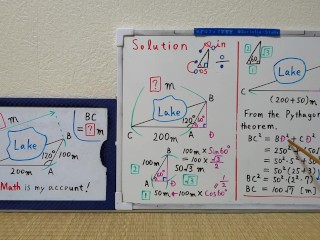 BC
= ? m
m
Lake
B
120°
100m
200m
A
Math is my account!
Solution
sin
cos
? m
Lake
B
C
200m
A
D
B
100m × Sin60°
= 100m × √3/2
50√3 m
A
D
50m ← 100m × Cos60°
1/2
2
√3
1
Lake
C
(200+50)m
From the Pythagor
theorem.
BC² = BD² + CD²
= 250² +
= 50²·5² +
= 50²(25+3)
BC² = 50²·(2²·7)
BC = 100√7 [m]